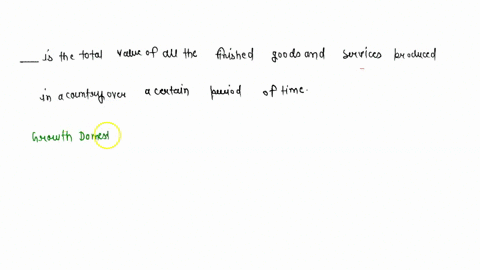 ___ is the total value of all the finished goods and services produced
in a country over a certain period of time.
Growth Domest